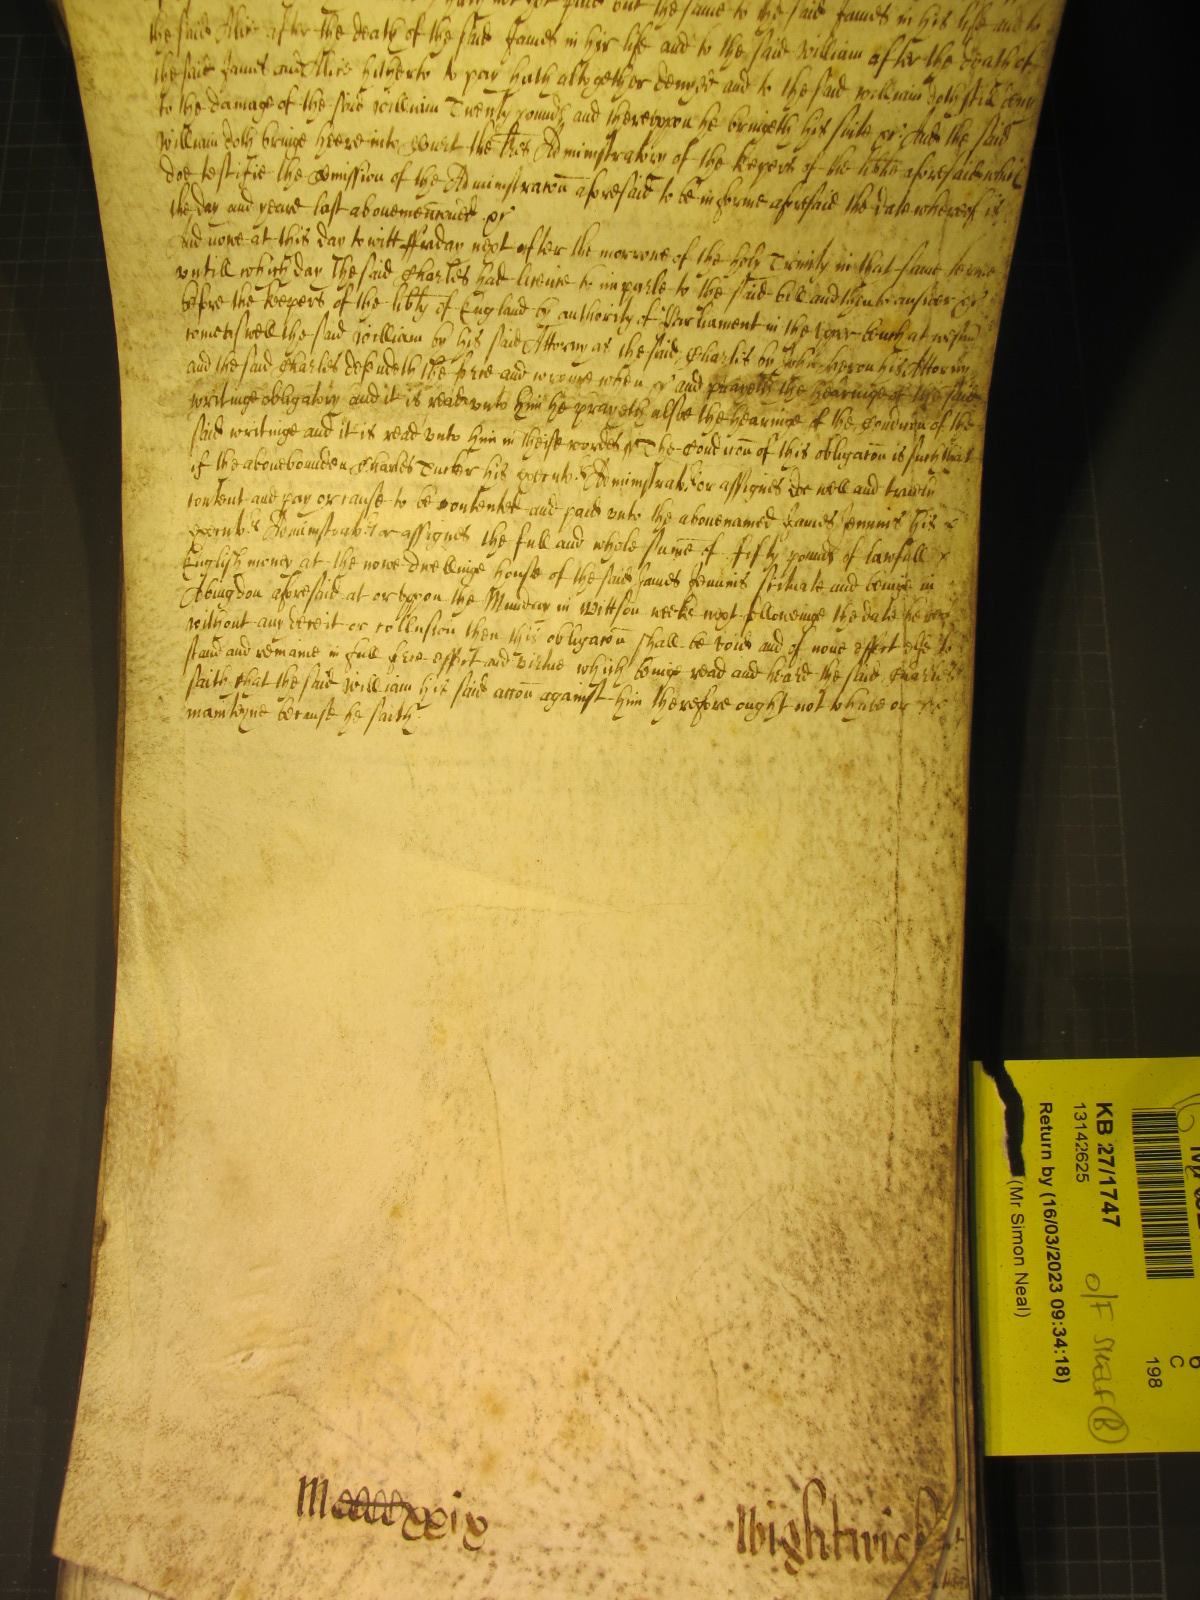 not yet paid but the same to the said James in his life and to
the said Alice after the death of the said James in her life and to the said William after the death of
the said James and Alice hitherto to pay hath altogether denyed and to the said William doth still deny
to the damage of the said William Twenty pounds and thereupon he bringeth his suite &c And the said
William doth bringe heere into Court the lr̄es Administratory of the keepers of the lib̄tie aforesaid which
doe testifie the Comission of the Administracōn aforesaid to be in forme aforesaid the date whereof is
the day and yeare last abovemenc̄oned &c
And nowe at this day to witt ffryday next after the morrowe of the holy Trinity in that same terme
untill which day the said Charles had licence to imparle to the said bill and then to answer &c
before the keepers of the lib̄ty of England by authority of Parliament in the upper bench at westm̄
cometh aswell the said William by his said Attorny as the said Charles by John heron his Attorny
and the said Charles defendeth the force and wronge when &c and prayeth the hearinge of the said
writinge obligatory and it is read unto him he prayeth alsoe the hearinge of the Condic̄on of the
said writinge and it is read unto him in theise wordes ss The Condic̄on of this obligac̄on is such that
if the abovebounden Charles Tucker his executo.rs Administrato.rs or assignes doe well and truely
content and pay or cause to be contented and paid unto the abovenamed James Jennins his
executo.rs Administrato.rs or assignes the full and whole sum̄e of fifty pounds of lawfull
English money at the nowe dwellinge house of the said James Jennins scituate and beinge in
Abingdon aforesaid at or upon the Munday in Wittson weeke next followeinge the date hereof
without any deceit or collusion then this obligac̄on shall be void and of none effect else to
stand and remaine in full force effect and virtue which beinge read and heard the said Charles
saith that the said William his said acc̄on against him therefore ought not to have or
mainteyne because he saith
Mccccxxix
Wightwick
KB 27/1747
13142625
Return by (16/03/2023 09:34:18)
(Mr Simon Neal)
O/F
C
198